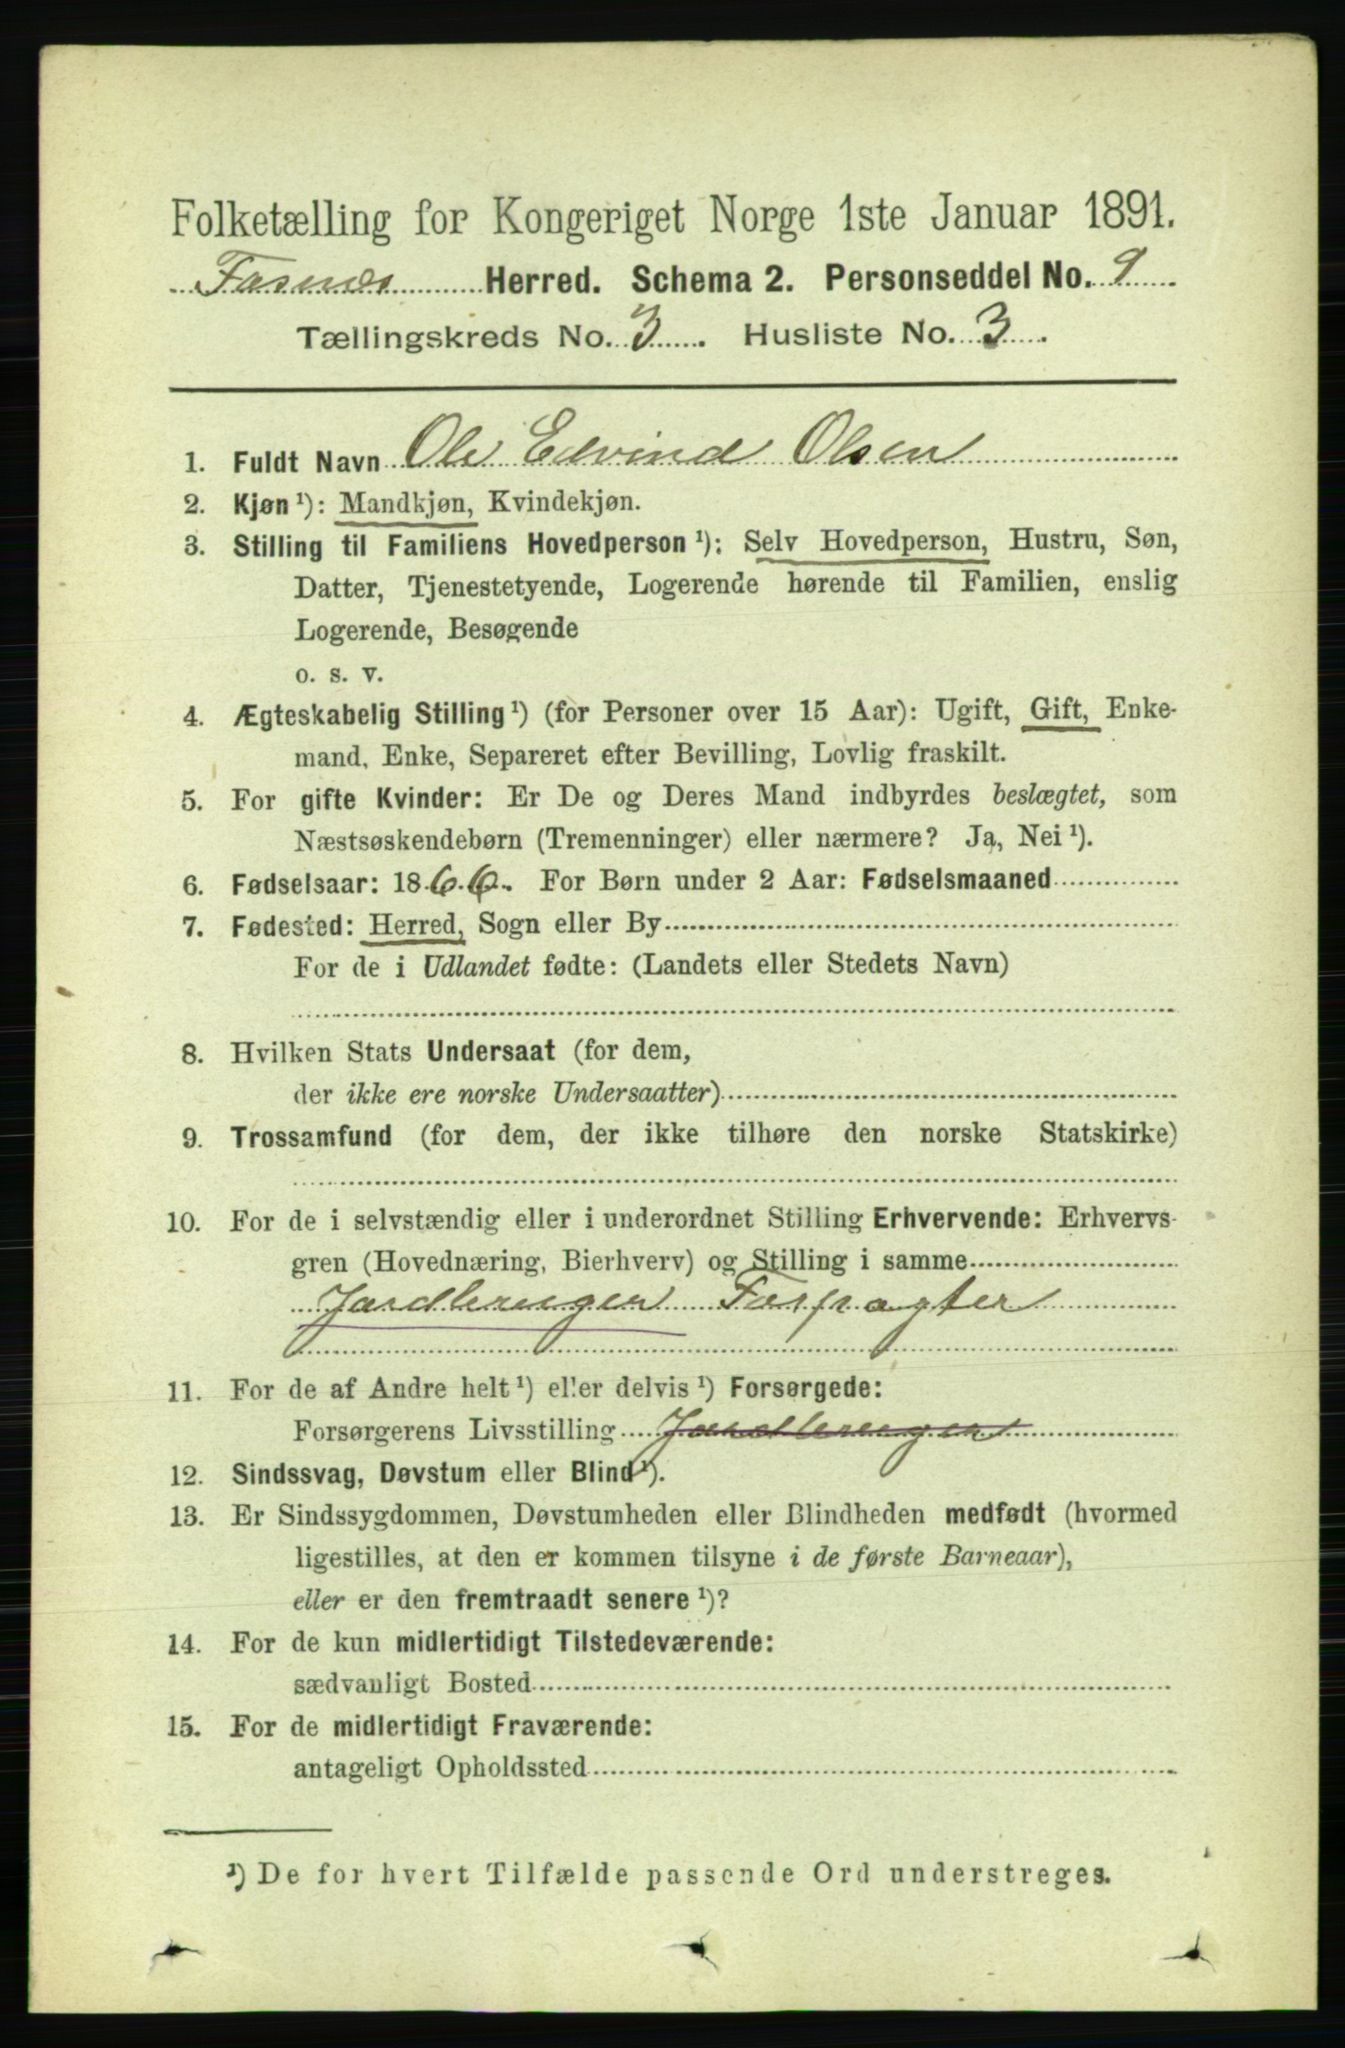 Folketælling for Kongeriget Norge 1ste Januar 1891.
Fosnes Herred. Schema 2. Personseddel No. 9
Tællingskreds No. 3. Husliste No. 3.
1. Fuldt Navn Ole Edvind Olsen
2. Kjøn ¹): Mandkjøn, Kvindekjøn.
3. Stilling til Familiens Hovedperson ¹): Selv Hovedperson, Hustru, Søn,
Datter, Tjenestetyende, Logerende hørende til Familien, enslig
Logerende, Besøgende
o. s. v.
4. Ægteskabelig Stilling ¹) (for Personer over 15 Aar): Ugift, Gift, Enke-
mand, Enke, Separeret efter Bevilling, Lovlig fraskilt.
5. For gifte Kvinder: Er De og Deres Mand indbyrdes beslægtet, som
Næstsøskendebørn (Tremenninger) eller nærmere? Ja, Nei ¹).
6. Fødselsaar: 1866. For Børn under 2 Aar: Fødselsmaaned
7. Fødested: Herred, Sogn eller By
For de i Udlandet fødte: (Landets eller Stedets Navn)
8. Hvilken Stats Undersaat (for dem,
der ikke ere norske Undersaatter)
9. Trossamfund (for dem, der ikke tilhøre den norske Statskirke)
10. For de i selvstændig eller i underordnet Stilling Erhvervende: Erhvervs-
gren (Hovednæring, Bierhverv) og Stilling i samme
Jordbruger Forpagter
11. For de af Andre helt ¹) eller delvis ¹) Forsørgede:
Forsørgerens Livsstilling Jordbruger
12. Sindssvag, Døvstum eller Blind ¹).
13. Er Sindssygdommen, Døvstumheden eller Blindheden medfødt (hvormed
ligestilles, at den er kommen tilsyne i de første Barneaar),
eller er den fremtraadt senere ¹)?
14. For de kun midlertidigt Tilstedeværende:
sædvanligt Bosted
15. For de midlertidigt Fraværende:
antageligt Opholdssted
¹) De for hvert Tilfælde passende Ord understreges.